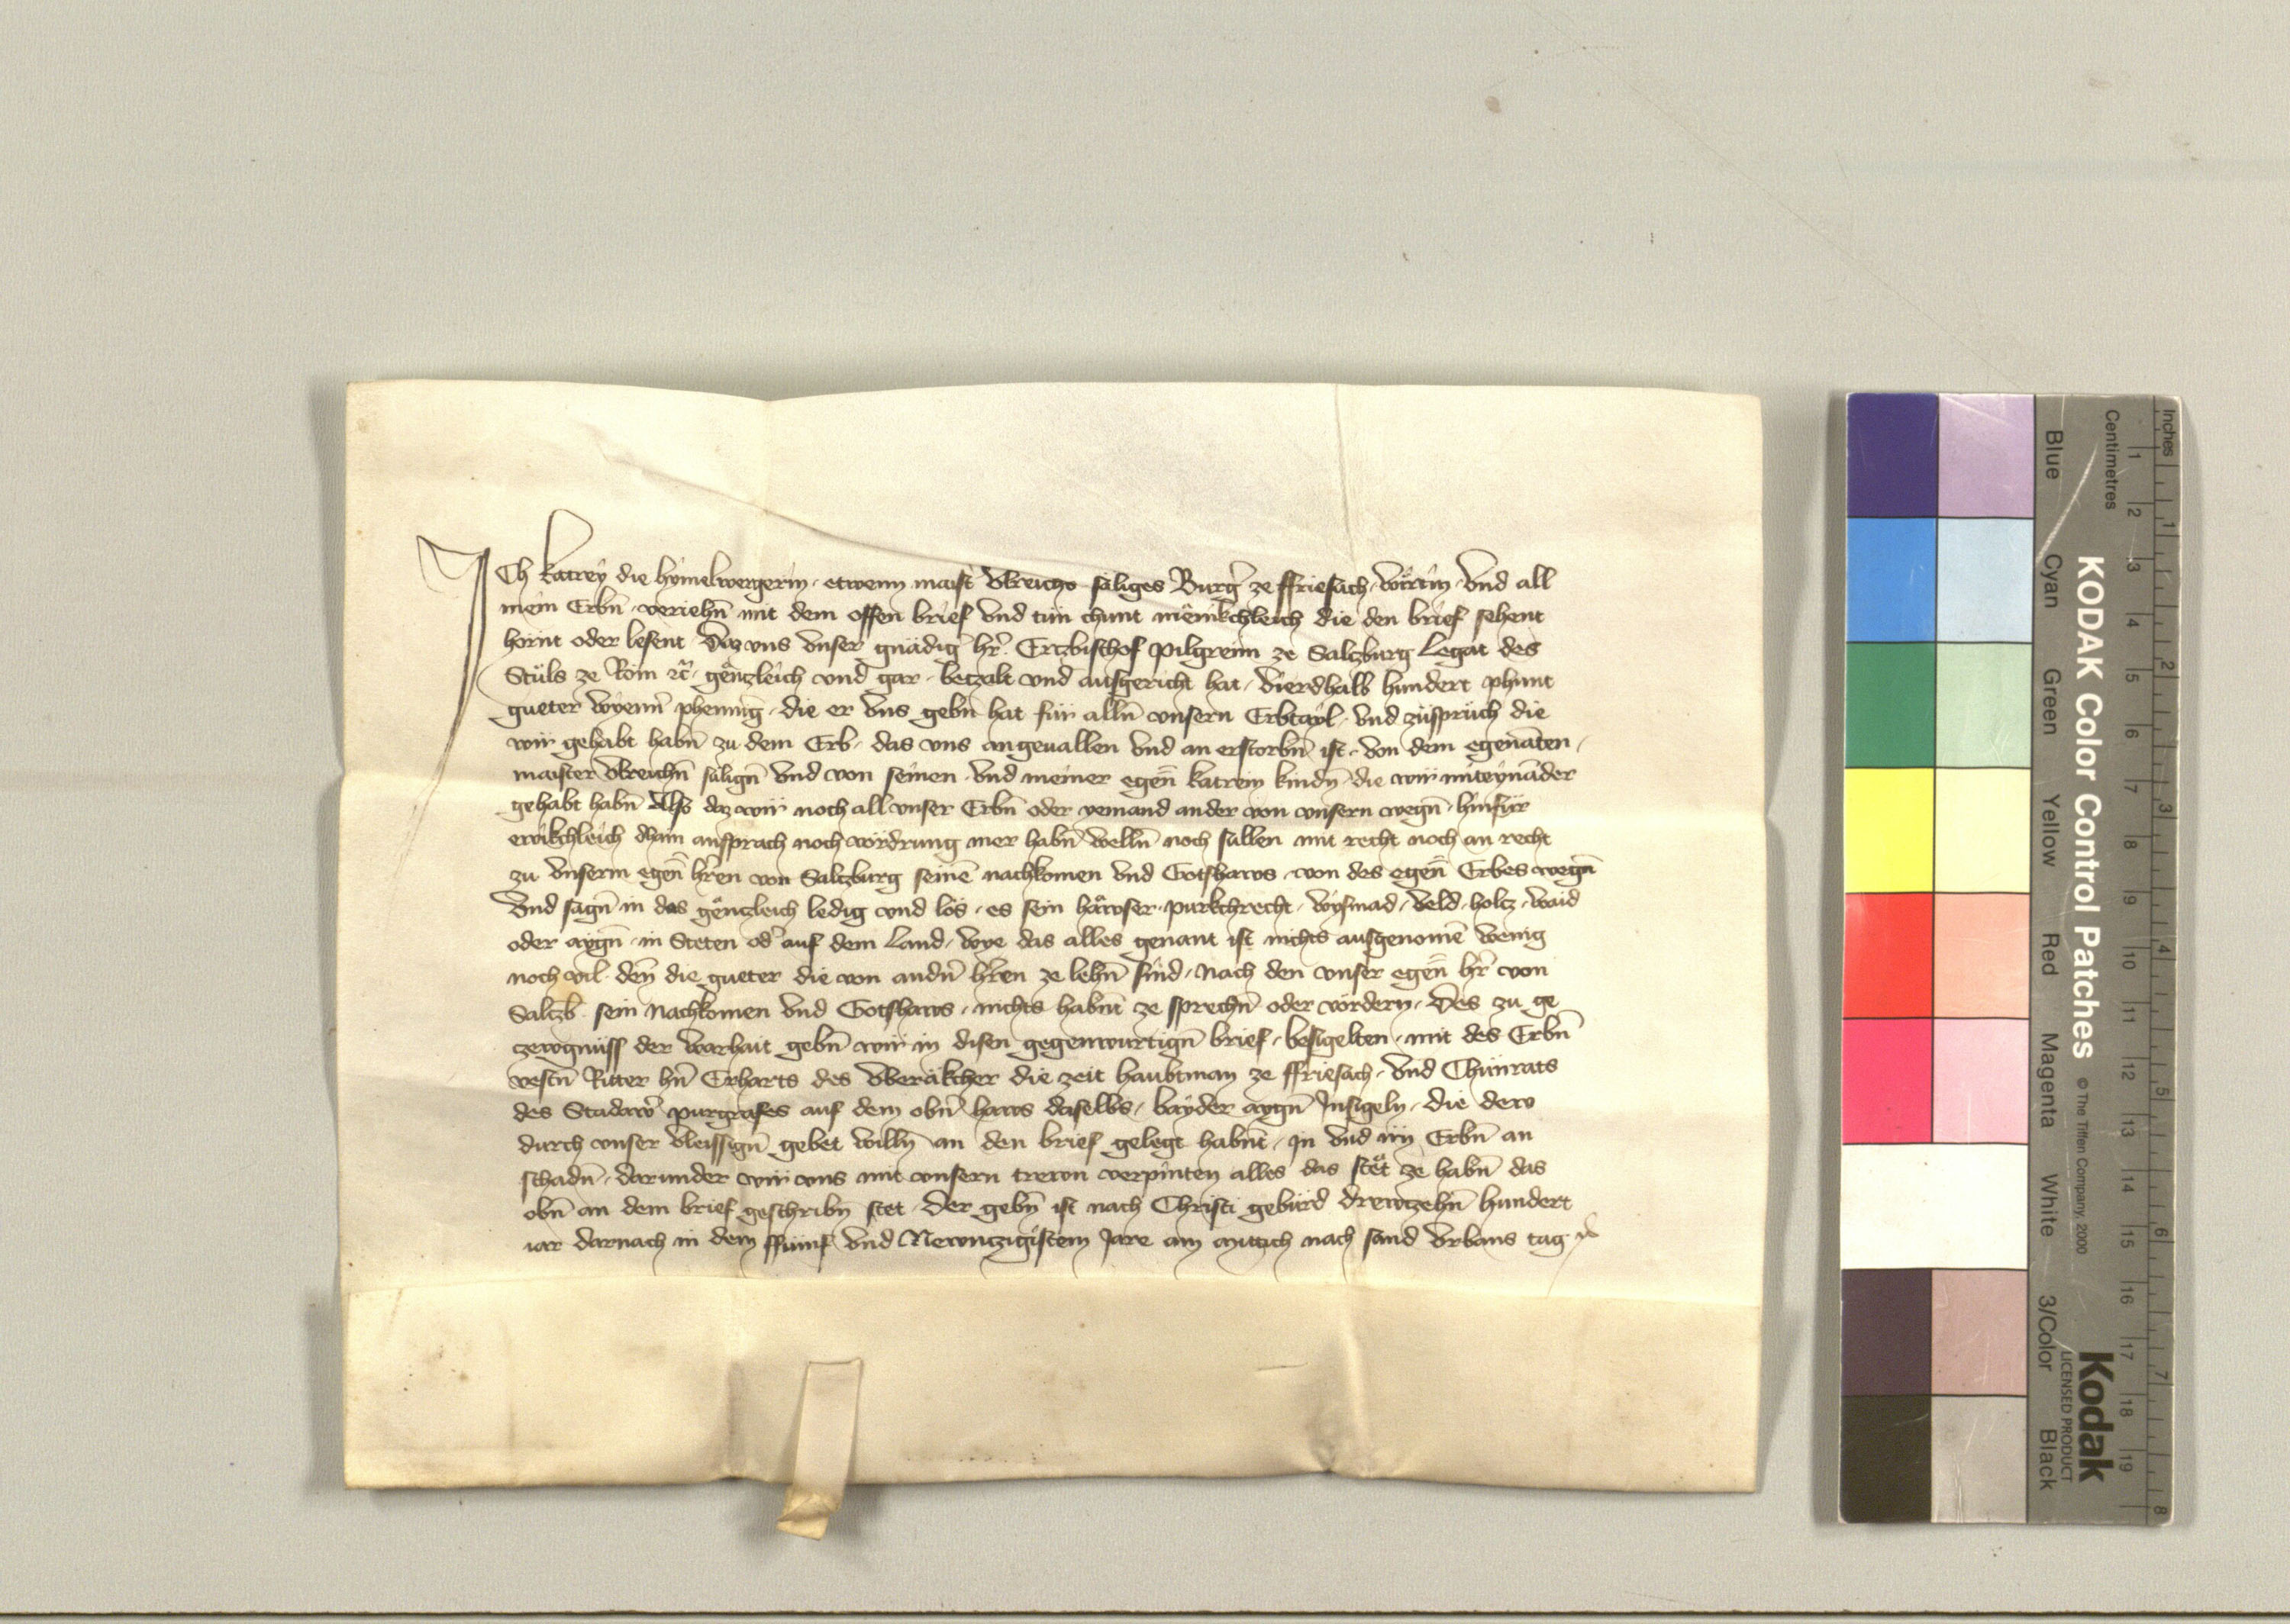 ICh katrey die hymelwergerin · etwenn maist̉ Vlreichs säliges Burg̉ ze ffriesach · wirttin · Vnd all
mein Erbn̄ · veriehn̄ mit dem offen brief vnd tün chunt mênikchleich die den brief sehent
hörnt oder lesent Daz vns vnser gnädig̉ hr̄ Ertzbischof Pilgreim ze Saltzburg Legat des
Stüls ze Rom ꝛc̄ · gêntzleich vnd gar · betzalt vnd ausgericht hat · Vierdhalb hundert phunt
gueter wyenn̉ phennig · die er vns gebn̄ hat für alln̄ vnsern Erbtayl · Vnd züsprüch die
wir gehabt habn̄ zu dem Erb · das vns angeuallen vnd an erstorbn̄ ist · von dem egenāten ·
maister Vlreichn̄ sälign̄ vnd von seinen · vnd meiner egen̄ katrein kindn̄ · die wir miteynāder
gehabt habn̄ Also daz wir noch all vnser Erbn̄ oder yemand ander von vnsern wegn̄ · hinfür
ewikchleich dhain ansprach noch vördrung mer habn̄ welln̄ noch süllen mit recht noch an recht
zu vnserm egen̄ hr̄en von Saltzburg seinē nachkomen vnd Gotshaws · von des egen̄ Erbes wegn̄
Vnd sagn̄ in des gêntzleich ledig vnd lös · es sein häwser · purkchrecht · wysmad · veld · holtz · waid
oder aygn̄ · in Steten od̉ auf dem Land · wye das alles genant ist nichts ausgenomē wenig
noch vil · den̄ die gueter die von andn̄ hr̄en ze lehn̄ sind · Nach den vnser egen̄ hr̄ von
Saltzb · sein Nachkomen vnd Gotshaws · nichts habnt ze sprechn̄ oder vördern · Des zu ge
zewgnüss der warhait gebn̄ wir in disen gegenwurtign̄ brief · besigelten · mit des Erbn̄
vestn̄ Ritter hn̄ Erharts des Oberäkcher die zeit haubtman ze ffriesach · Vnd Chünrats
des Stadaw̉ purgrafes auf dem obn̄ haws daselbs · bayder aygn̄ Insigeln · die dew
durch vnser vleissign̄ gebet willn̄ an den brief gelegt habnt · in vnd irn̄ Erbn̄ an
schadn̄ · darunder wir vns mit vnsern trewn verpinten alles das stêt ze habn̄ das
obn̄ an dem brief geschribn̄ stet · Der gebn̄ ist nach Christi gebürd drewtzehn̄ hundert
iar darnach in dem ffünf vnd Newntzigistem Jare am mittich nach sand Vrbans tag
KODAK Color Control Patches © The Tiffen Company, 2000 Kodak LICENSED PRODUCT
Inches 1 2 3 4 5 6 7 8
Centimetres 1 2 3 4 5 6 7 8 9 10 11 12 13 14 15 16 17 18 19
Blue Cyan Green Yellow Red Magenta White 3/Color Black